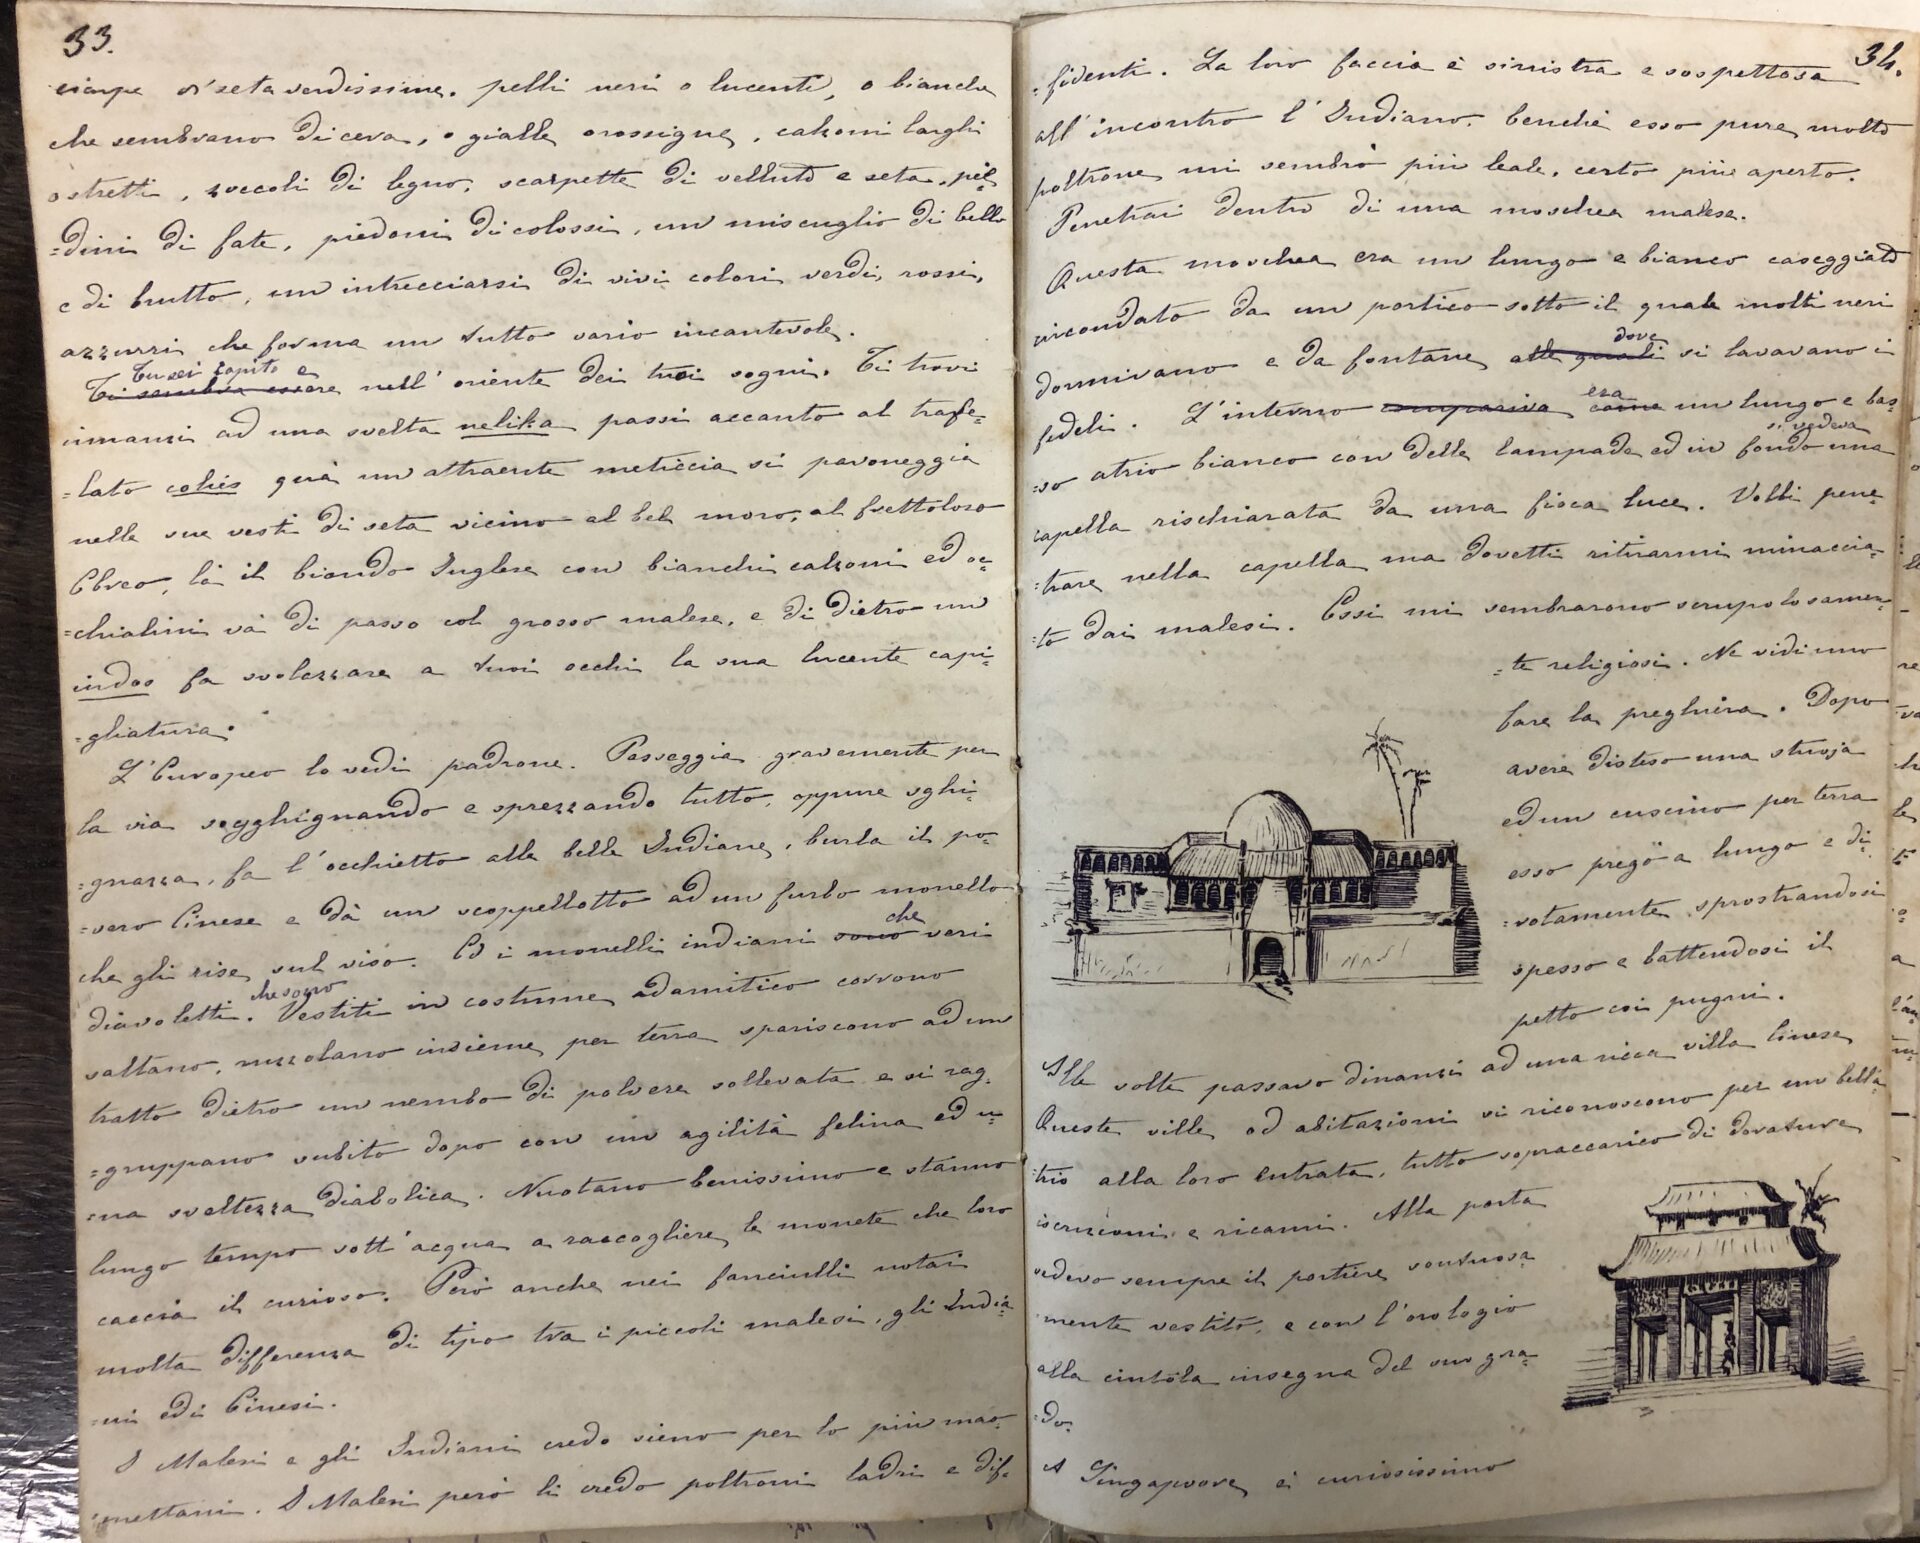 33.
ciarpe di seta verdissime. pelli neri o lucenti, o bianche
che sembrano di cera, o gialle o rossigne, calzoni larghi
o stretti, zoccoli di legno, scarpette di velluto e seta, pie-
=dini di fate, piedoni di colossi, un miscuglio di bello
e di brutto, un intrecciarsi di vivi colori verdi, rossi,
azzurri che forma un tutto vario incantevole.
Tu sei rapito e
Ti sembra essere nell'oriente dei tuoi sogni. Ti trovi
innanzi ad una svelta nelika passi accanto al trafe-
=lato colies quà un attraente meticcia si pavoneggia
nelle sue vesti di seta vicino al bel moro, al frettoloso
Ebreo, là il biondo Inglese con bianchi calzoni ed oc-
=chialini và di passo col grosso malese, e di dietro un
indoo fa svolazzare a tuoi occhi la sua lucente capi-
=gliatura.
L'Europeo lo vedi padrone. Passeggia gravemente per
la via sogghignando e sprezzando tutto, oppure sghi-
=gnazza, fa l'occhietto alle belle Indiane, burla il po-
=vero Cinese e dà un scoppellotto ad un furbo monello
che gli rise sul viso. Ed i monelli indiani sono che veri
diavoletti. che sono Vestiti in costume adamitico corrono
saltano, ruzzolano insieme per terra spariscono ad un
tratto dietro un nembo di polvere sollevata e si rag-
=gruppano subito dopo con un agilità felina ed u-
=na sveltezza diabolica. Nuotano benissimo e stanno
lungo tempo sott'acqua a raccogliere le monete che loro
caccia il curioso. Però anche nei fanciulli notai
molta differenza di tipo tra i piccoli malesi, gli India-
=ni ed i Cinesi.
I Malesi e gli Indiani credo sieno per lo più mao-
=mettani. I Malesi però li credo poltroni ladri e dif-
34.
=fidenti. La loro faccia è sinistra e sospettosa
all'incontro l'Indiano, benchè esso pure molto
poltrone mi sembrò più leale, certo più aperto.
Penetrai dentro di una moschea malese.
Questa moschea era un lungo e bianco caseggiato
circondato da un portico sotto il quale molti neri
dormivano e da fontane alle quali dove si lavavano i
fedeli. L'interno compariva come era un lungo e bas-
=so atrio bianco con delle lampade ed in fondo si vedeva una
capella rischiarata da una fioca luce. Volli pene-
=trare nella capella ma dovetti ritirarmi minaccia-
=to dai malesi. Essi mi sembrarono scrupolosamen-
=te religiosi. Ne vidi uno
fare la preghiera. Dopo
avere disteso una stuoja
ed un cuscino per terra
esso pregò a lungo e di-
=votamente, sprostrandosi
spesso e battendosi il
petto coi pugni.
Alle volte passavo dinanzi ad una ricca villa Cinese
Queste ville od abitazioni si riconoscono per un bell'a-
=trio alla loro entrata, tutto sopraccarico di dorature
iscrizioni e ricami. Alla porta
vedevo sempre il portiere sontuosa-
=mente vestito, e con l'orologio
alla cintola insegna del suo gra-
=do.
A Singapoore è curiosissimo